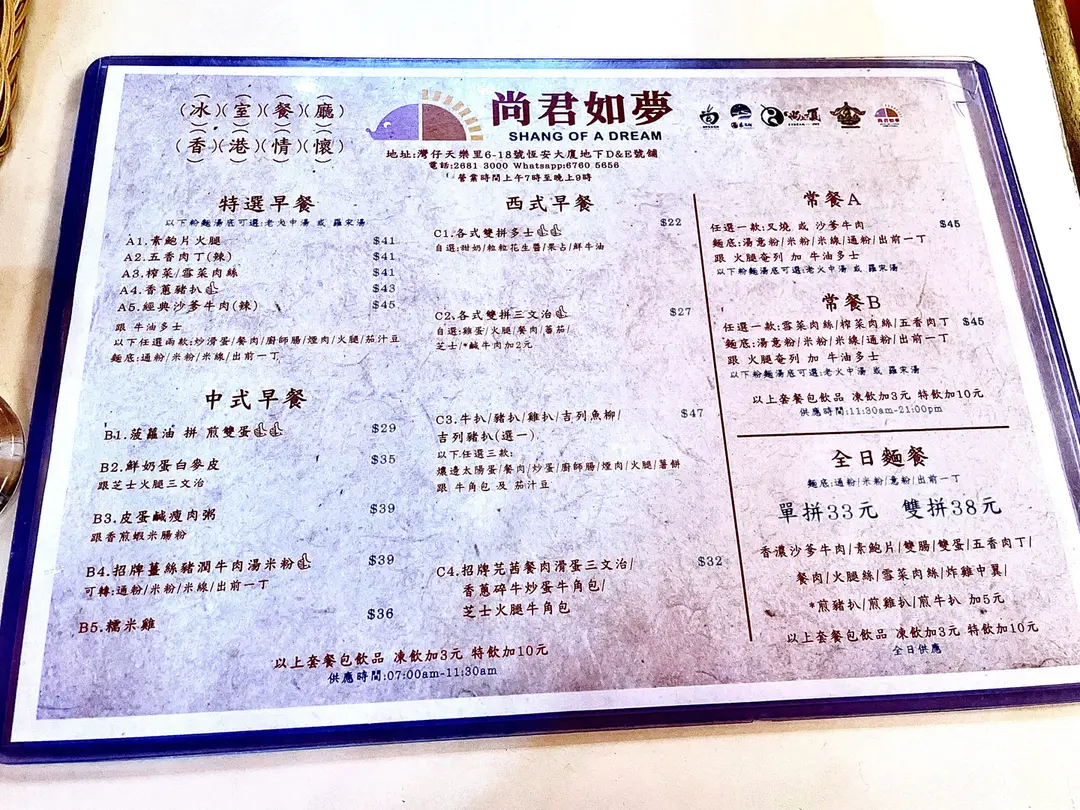 (冰)(室)(餐)(廳)
(香)(港)(情)(懷)
尚君如夢
SHANG OF A DREAM
地址:灣仔天樂里6-18號恆安大廈地下D&E號舖
電話:2681 3000 Whatsapp:6760 5656
營業時間上午7時至晚上9時
特選早餐
以下粉麵湯底可選:老火中湯 或 羅宋湯
A1.素鮑片火腿 $41
A2.五香肉丁(辣) $41
A3.榨菜/雪菜肉絲 $41
A4.香蔥豬扒 $43
A5.經典沙爹牛肉(辣) $45
跟 牛油多士
以下任選兩款:炒滑蛋/餐肉/廚師腸/煙肉/火腿/茄汁豆
麵底:通粉/米粉/米線/出前一丁
中式早餐
B1.菠蘿油 拼 煎雙蛋 $29
B2.鮮奶蛋白麥皮 $35
跟芝士火腿三文治
B3.皮蛋鹹瘦肉粥 $39
跟香煎蝦米腸粉
B4.招牌薑絲豬潤牛肉湯米粉 $39
可轉:通粉/米粉/米線/出前一丁
B5.糯米雞 $36
西式早餐
C1.各式雙拼多士 $22
自選:甜奶/粒粒花生醬/果占/鮮牛油
C2.各式雙拼三文治 $27
自選:雞蛋/火腿/餐肉/蕃茄/
芝士/*鹹牛肉加2元
C3.牛扒/豬扒/雞扒/吉列魚柳/ $47
吉列豬扒(選一)
以下任選三款:
燶邊太陽蛋/餐肉/炒蛋/廚師腸/煙肉/火腿/薯餅
跟 牛角包 及 茄汁豆
C4.招牌芫茜餐肉滑蛋三文治/ $32
香蔥碎牛炒蛋牛角包/
芝士火腿牛角包
以上套餐包飲品 凍飲加3元 特飲加10元
供應時間:07:00am-11:30am
常餐A
任選一款:叉燒 或 沙爹牛肉 $45
麵底:湯意粉/米粉/米線/通粉/出前一丁
跟 火腿奄列 加 牛油多士
以下粉麵湯底可選:老火中湯 或 羅宋湯
常餐B
任選一款:雪菜肉絲/榨菜肉絲/五香肉丁 $45
麵底:湯意粉/米粉/米線/通粉/出前一丁
跟 火腿奄列 加 牛油多士
以下粉麵湯底可選:老火中湯 或 羅宋湯
以上套餐包飲品 凍飲加3元 特飲加10元
供應時間:11:30am-21:00pm
全日麵餐
麵底:通粉/米粉/意粉/出前一丁
單拼33元 雙拼38元
香濃沙爹牛肉/素鮑片/雙腸/雙蛋/五香肉丁/
餐肉/火腿絲/雪菜肉絲/炸雞中翼/
*煎豬扒/煎雞扒/煎牛扒 加5元
以上套餐包飲品 凍飲加3元 特飲加10元
全日供應